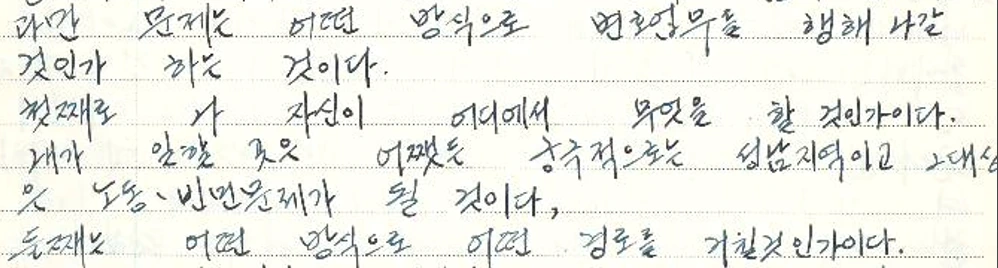 과간 문제는 어떤 방식으로 변호업무를 행해 나갈
것인가 하는 것이다.
첫째로 나 자신이 어디에서 무엇을 할 것인가이다.
내가 일할 곳은 어쨌든 궁극적으로는 성남지역이고 그대상
은 노동、빈민문제가 될 것이다,
둘째는 어떤 방식으로 어떤 경로를 거칠것인가이다.